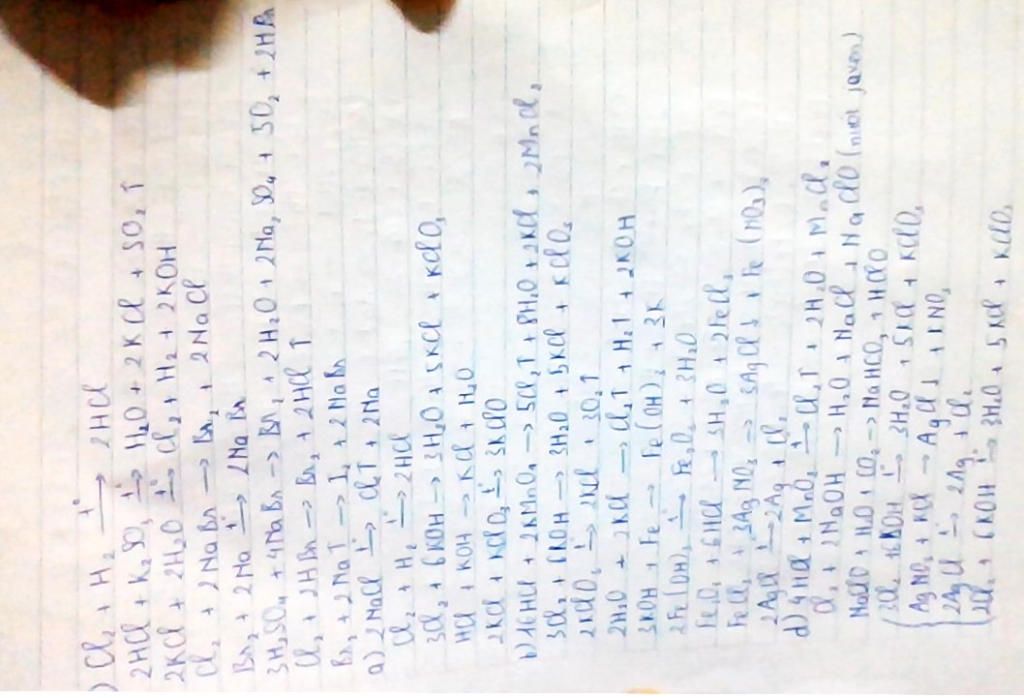 ) Cl₂ + H₂ →(t°) 2HCl
2HCl + K₂SO₃ →(t°) H₂O + 2KCl + SO₂↑
2KCl + 2H₂O →(t°) Cl₂ + H₂ + 2KOH
Cl₂ + 2NaBr → Br₂ + 2NaCl
Br₂ + 2Na →(t°) 2NaBr
3H₂SO₄ + 4NaBr → Br₂ + 2H₂O + 2Na₂SO₄ + SO₂ + 2HBr
Cl₂ + 2HBr → Br₂ + 2HCl↑
Br₂ + 2NaI → I₂ + 2NaBr
a) 2NaCl →(t°) Cl₂↑ + 2Na
Cl₂ + H₂ →(t°) 2HCl
3Cl₂ + 6KOH → 3H₂O + 5KCl + KClO₃
HCl + KOH → KCl + H₂O
2KCl + KClO₃ →(t°) 3KClO
b) 16HCl + 2KMnO₄ → 5Cl₂↑ + 8H₂O + 2KCl + 2MnCl₂
3Cl₂ + 6KOH → 3H₂O + 5KCl + KClO₃
2KClO₃ →(t°) 2KCl + 3O₂↑
2H₂O + 2KCl → Cl₂↑ + H₂↑ + 2KOH
3KOH + Fe → Fe(OH)₃ + 3K
2Fe(OH)₃ →(t°) Fe₂O₃ + 3H₂O
Fe₂O₃ + 6HCl → 3H₂O + 2FeCl₃
FeCl₃ + 3AgNO₃ → 3AgCl↓ + Fe(NO₃)₃
2AgCl →(t°) 2Ag + Cl₂
d) 4HCl + MnO₂ →(t°) Cl₂↑ + 2H₂O + MnCl₂
Cl₂ + 2NaOH → H₂O + NaCl + NaClO (nước javen)
NaClO + H₂O + CO₂ → NaHCO₃ + HClO
3Cl₂ + 6KOH →(t°) 3H₂O + 5KCl + KClO₃
AgNO₃ + KCl → AgCl↓ + KNO₃
2AgCl →(t°) 2Ag + Cl₂
+ 6KOH →(t°) 3H₂O + 5KCl + KClO₃